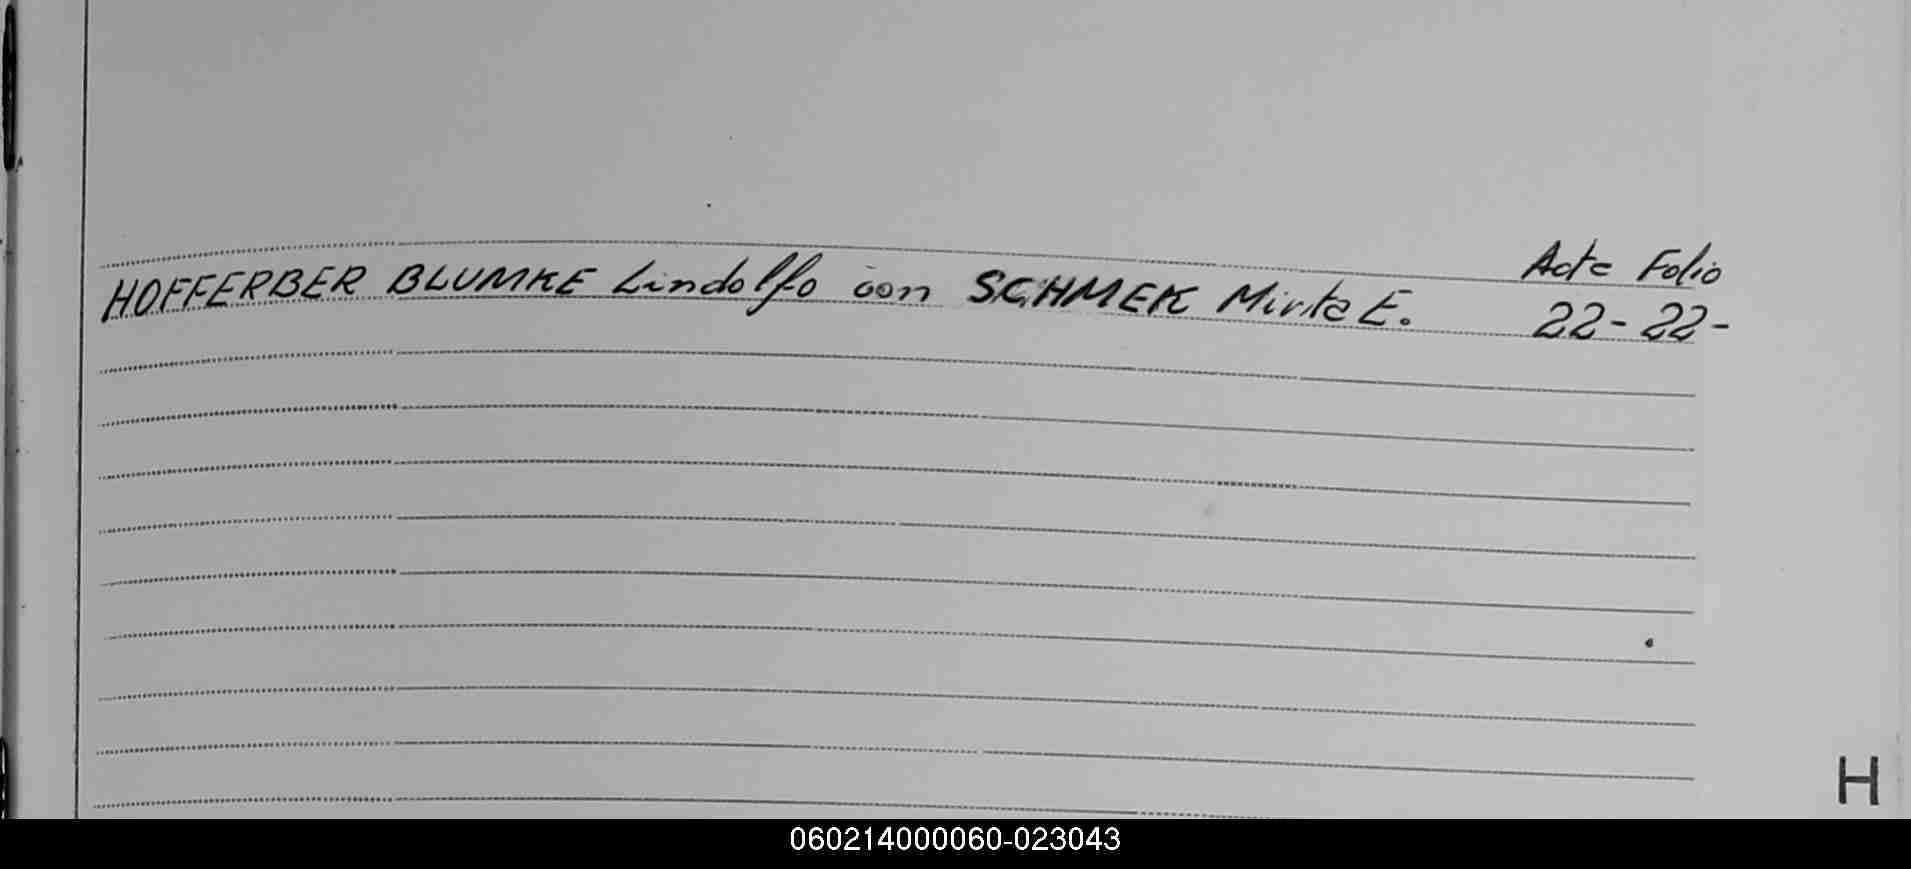 Acta Folio
HOFFERBER BLUMKE Lindolfo con SCHMEK Mirta E. 22- 22-
H
060214000060-023043